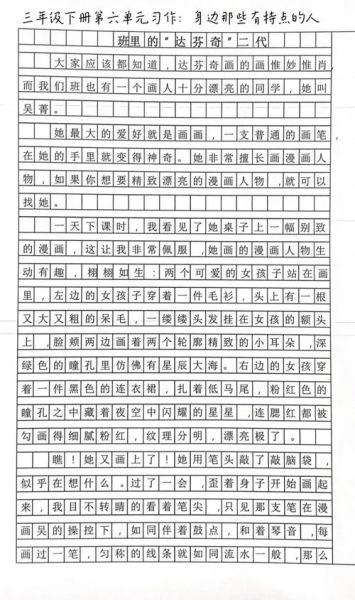 三年级下册第六单元习作：身边那些有特点的人
班里的“达芬奇”二代
大家应该都知道，达芬奇画的画惟妙惟肖，
而我们班也有一个画人十分漂亮的同学，她叫
吴菁。
她最大的爱好就是画画，一支普通的画笔
在她的手里就变得神奇。她非常擅长画漫画人
物，如果你想要精致漂亮的漫画人物，就可以
找她。
一天下课时，我看见了她桌子上一幅别致
的漫画，这让我非常佩服，她画的漫画人物生
动有趣，栩栩如生：两个可爱的女孩子站在画
里，左边的女孩子穿着一件毛衫，头上有一根
又大又粗的呆毛，一缕缕头发挂在女孩的额头
上，脸颊两边画着两个轮廓精致的小耳朵，深
绿色的瞳孔里仿佛有星辰大海。右边的女孩穿
着一件黑色的连衣裙，扎着低马尾，粉红色的
瞳孔之中藏着夜空中闪耀的星星，连腮红都被
勾画得细腻粉红，纹理分明，漂亮极了。
瞧！她又画上了！她用笔头敲了敲脑袋，
似乎在想什么。过了一会，歪着身子开始画起
来，我目不转睛的看着笔尖，只见那支笔在漫
画吴的操控下，如同伴着鼓点，和着琴音，每
画过一笔，匀称的线条就如同流水一般，那么